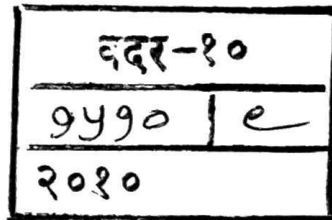 वदर-१०
१५१० | ९
२०१०